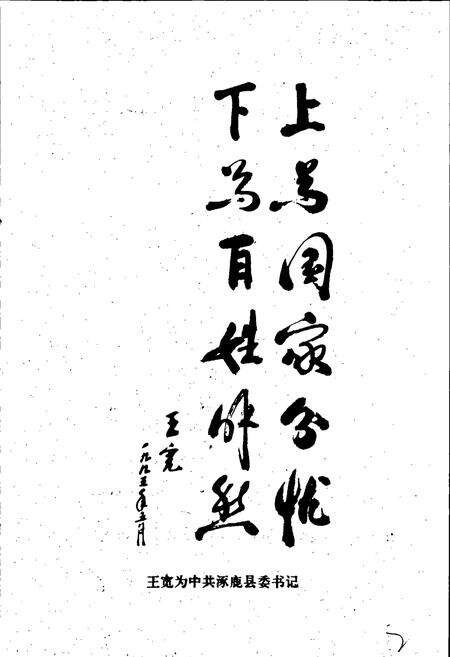 上为国家分忧
下为百姓解愁
王宽
一九九五年五月
王宽为中共涿鹿县委书记